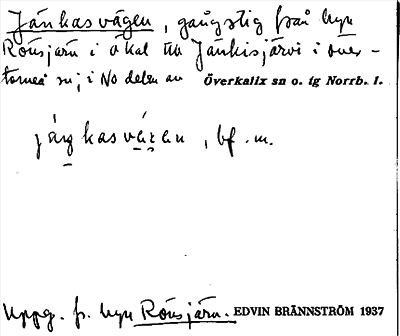 Jänkasvägen, gångstig från byn
Rönsjärn i Ö kal till Jänkisjärvi i över-
torneå sn; i No delen av Överkalix sn o. tg Norrb. l.
järkasvä́gen, bf. m.
Uppg. fr. byn Rönsjärn. EDVIN BRÄNNSTRÖM 1937